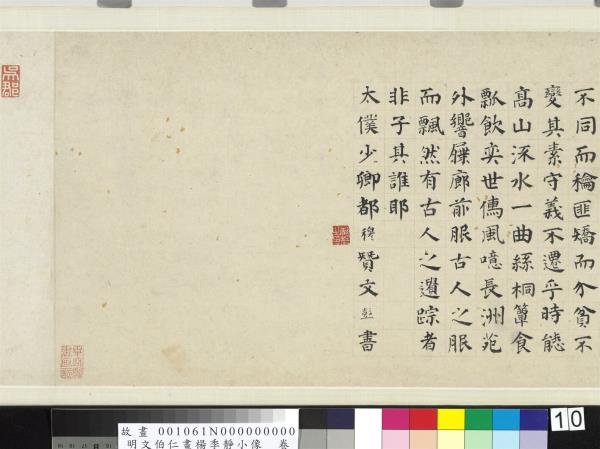 不同而穐匪矯而介貧不
變其素守義不遷乎時態
髙山深水一曲絲桐簞食
瓢飲奕世儁風噫長洲苑
外響屧廊前服古人之服
而飄然有古人之遺踪者
非子其誰耶
太僕少卿都穆贊文彭書
吳郡
10
故畫 001061N000000000
明文伯仁畫楊季靜小像 卷